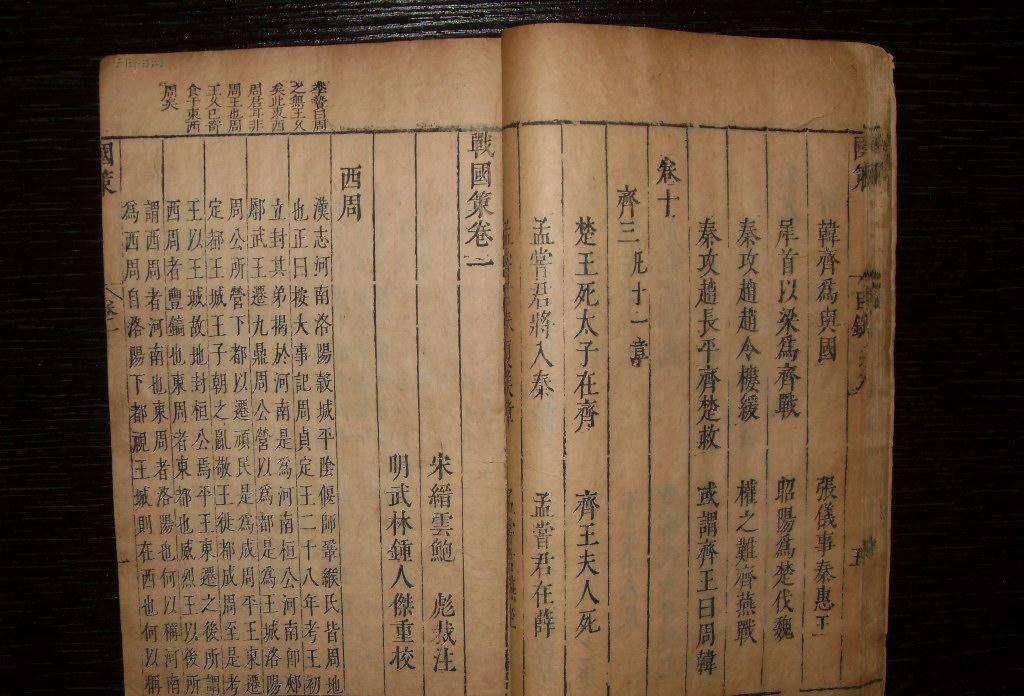 韓齊為與國　張儀事秦惠王
犀首以梁為齊戰　昭陽為楚伐魏
秦攻趙趙令樓緩　權之難齊燕戰
秦攻趙長平齊楚救　或謂齊王曰周韓
卷十
齊三凡十一章
楚王死太子在齊　齊王夫人死
孟嘗君將入秦　孟嘗君在薛
戰國策卷一
宋縉雲鮑　彪裁注
明武林鍾人傑重校
西周
自周
之無王久
矣此東西
周君耳非
周王也周
王久已寄
食于東西
周矣
漢志河南洛陽穀城平陰偃師鞏緱氏皆周地
也正曰按大事記周貞定王二十八年考王初
立封其弟揭於河南是為河南桓公河南即郟
鄏武王遷九鼎周公營以為都是為王城洛陽
周公所營下都以遷頑民是為成周平王東遷
定都王城王子朝之亂敬王徙都成周至是考
王以王城故地封桓公焉平王東遷之後所謂
西周者豐鎬也東周者東都也威烈王以後所
謂西周者河南也東周者洛陽也何以稱河南
為西周自洛陽下都視王城則在西也何以稱
國策　卷一　一